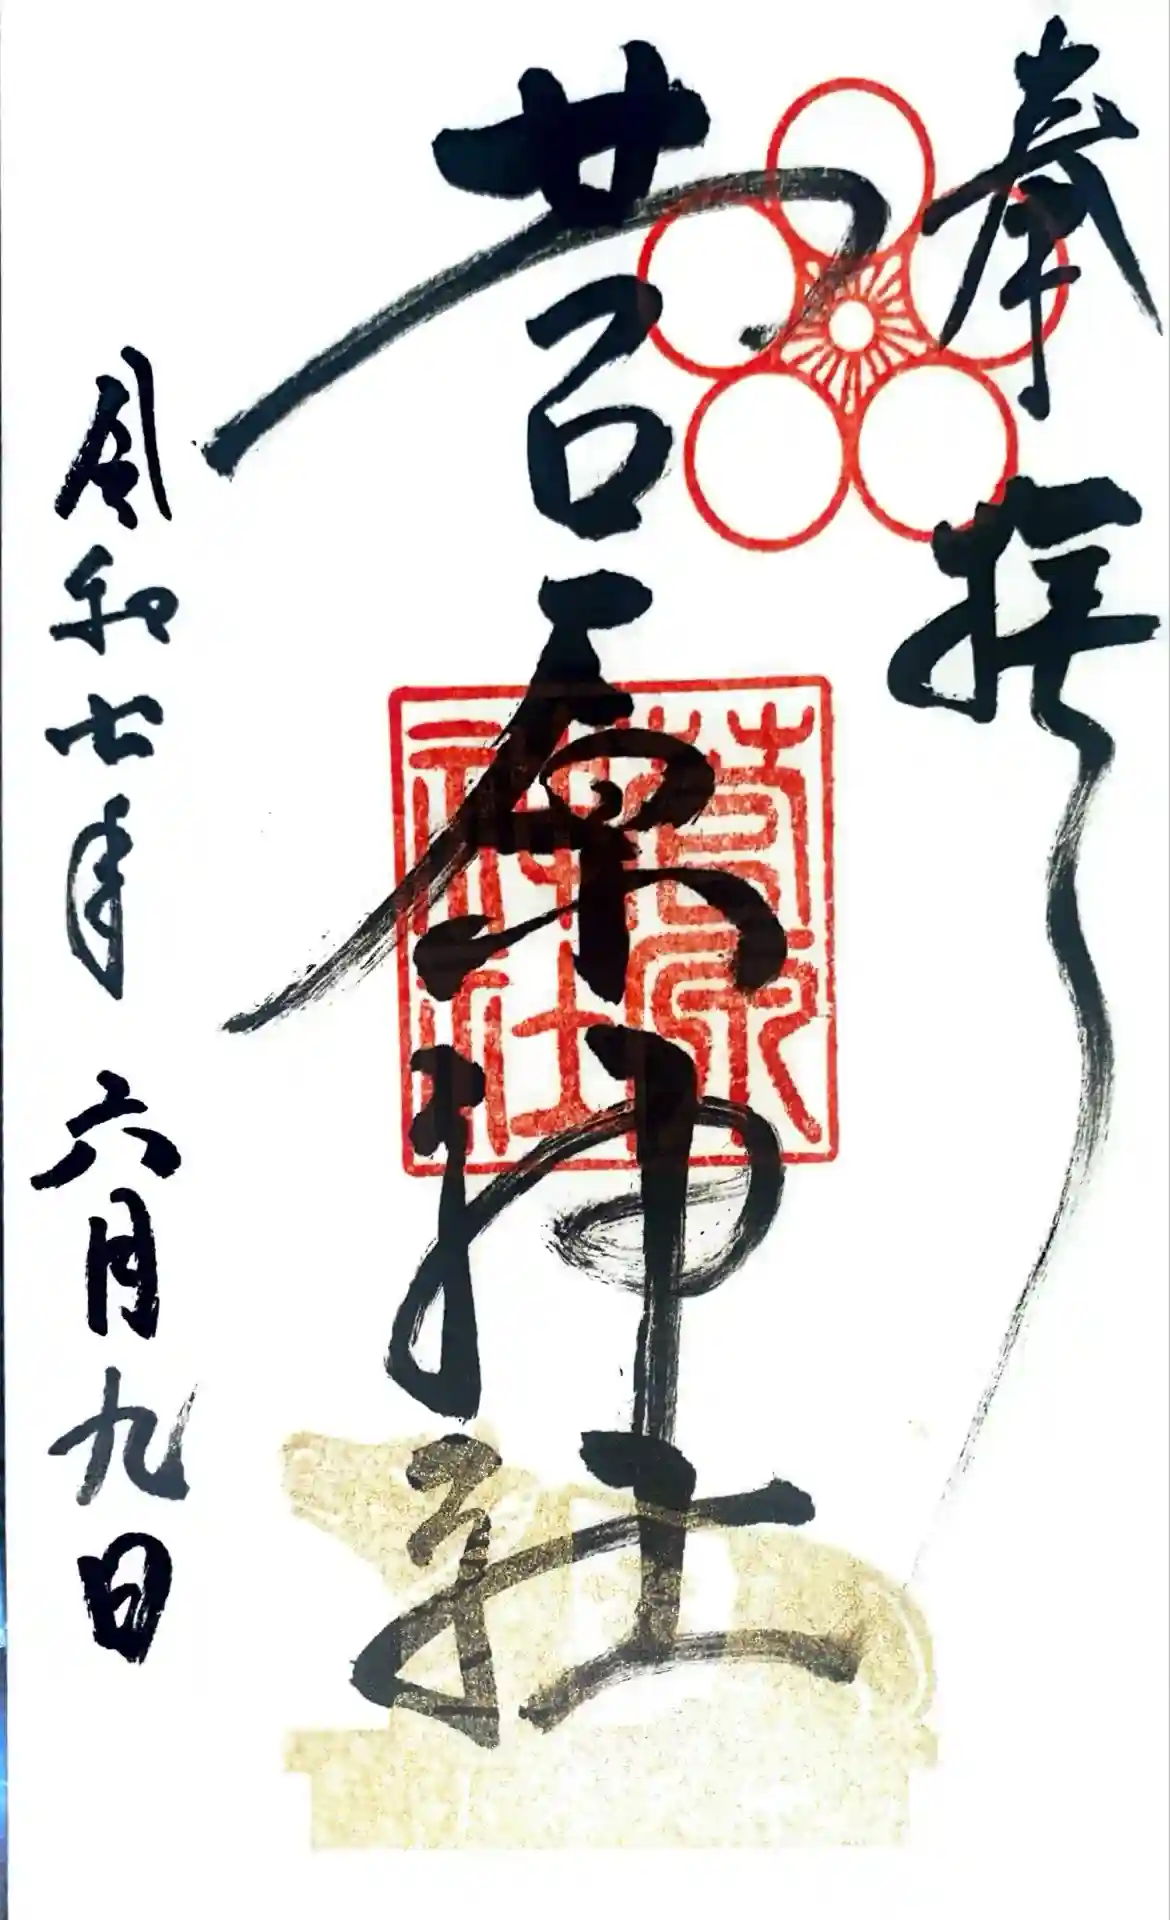 奉拝
菅原神社
令和七年六月九日
菅原
神社